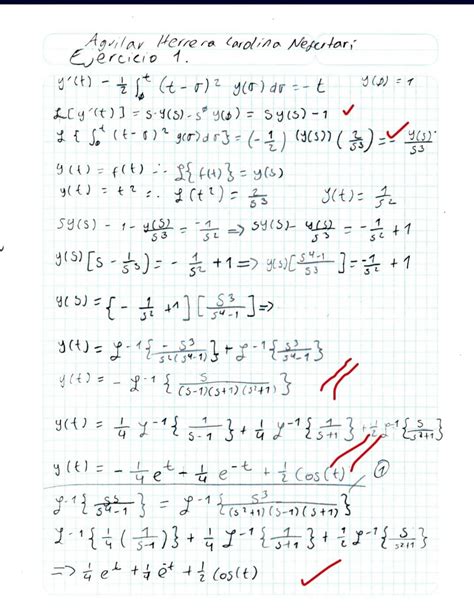 Aguilar Herrera Carolina Nefertari
Ejercicio 1.
y'(t) - 1/2 ∫₀ᵗ (t-σ)² y(σ)dσ = -t    y(0) = 1
ℒ[y'(t)] = s·y(s) - s⁰ y(0) = sy(s) - 1
ℒ{∫₀ᵗ (t-σ)² y(σ)dσ} = (-1/2)(y(s))(2/s³) = - y(s)/s³
y(t) = f(t) ∴ ℒ{f(t)} = y(s)
y(t) = t² ∴ ℒ(t²) = 2/s³    y(t) = 1/s²
sy(s) - 1 - y(s)/s³ = -1/s² => sy(s) - y(s)/s³ = -1/s² + 1
y(s)[s - 1/s³] = -1/s² + 1 => y(s)[s⁴-1/s³] = -1/s² + 1
y(s) = {-1/s² + 1}[s³/s⁴-1] =>
y(t) = ℒ⁻¹{-s³/s²(s⁴-1)} + ℒ⁻¹{s³/s⁴-1}
y(t) = -ℒ⁻¹{s/(s-1)(s+1)(s²+1)}
y(t) = 1/4 ℒ⁻¹{1/s-1} + 1/4 ℒ⁻¹{1/s+1} + 1/2 ℒ⁻¹{s/s²+1}
y(t) = -1/4 eᵗ - 1/4 e⁻ᵗ + 1/2 Cos(t) ①
ℒ⁻¹{s³/s⁴-1} = ℒ⁻¹{s³/(s²+1)(s-1)(s+1)}
ℒ⁻¹{1/4 (1/s-1)} + 1/4 ℒ⁻¹{1/s+1} + 1/2 ℒ⁻¹{s/s²+1}
=> 1/4 eᵗ + 1/4 e⁻ᵗ + 1/2 Cos(t)